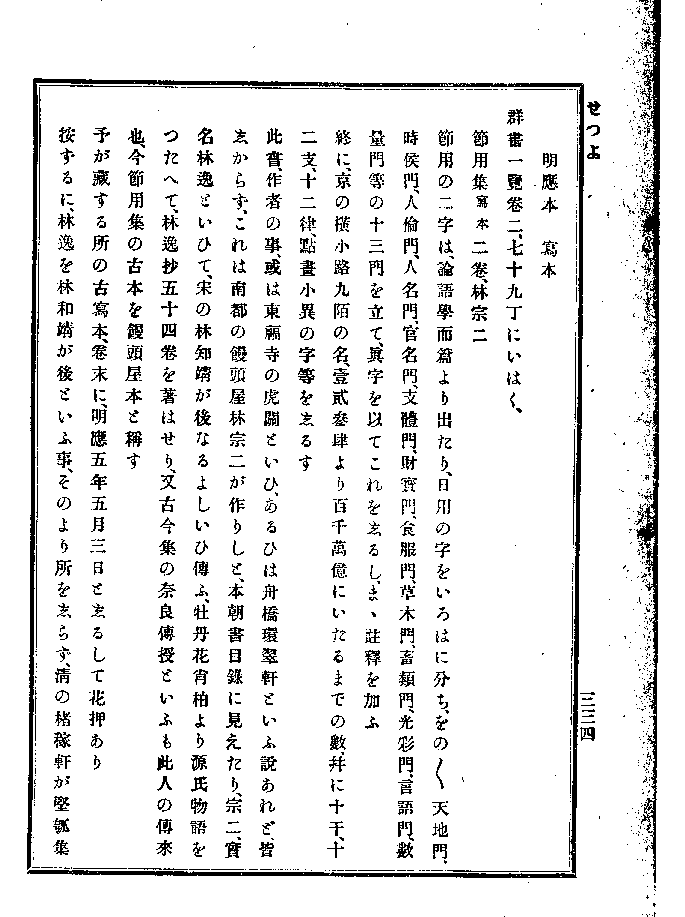 せつよ
明應本　寫本
群書一覽卷二、七十九丁にいはく、
節用集寫本二卷、林宗二
節用の二字は、論語學而篇より出たり、日用の字をいろはに分ち、をの〱天地門、
時侯門、人倫門、人名門、官名門、支體門、財寳門、食服門、草木門、畜類門、光彩門、言語門、數
量門等の十三門を立て、眞字を以てこれをゑるし、まゝ註釋を加ふ
終に、京の横小路九陌の名、壹貳叄肆より百千萬億にいたるまでの數、幷に十干、十
二支、十二律、點畫小異の字等をゑるす
此書、作者の事、或は東福寺の虎關といひ、あるひは舟橋環翠軒といふ説あれど、皆
ゑからず、これは南都の饅頭屋林宗二が作りしと、本朝書目錄に見えたり、宗二、實
名林逸といひて、宋の林知靖が後なるよしいひ傳ふ、牡丹花肖柏より源氏物語を
つたへて、林逸抄五十四卷を著はせり、又古今集の奈良傳授といふも此人の傳來
也、今節用集の古本を饅頭屋本と稱す
予が藏する所の古寫本、卷末に、明應五年五月三日とゑるして花押あり
按ずるに、林逸を林和靖が後といふ事、そのより所をゑらず、淸の楮稼軒が堅瓠集
三三四